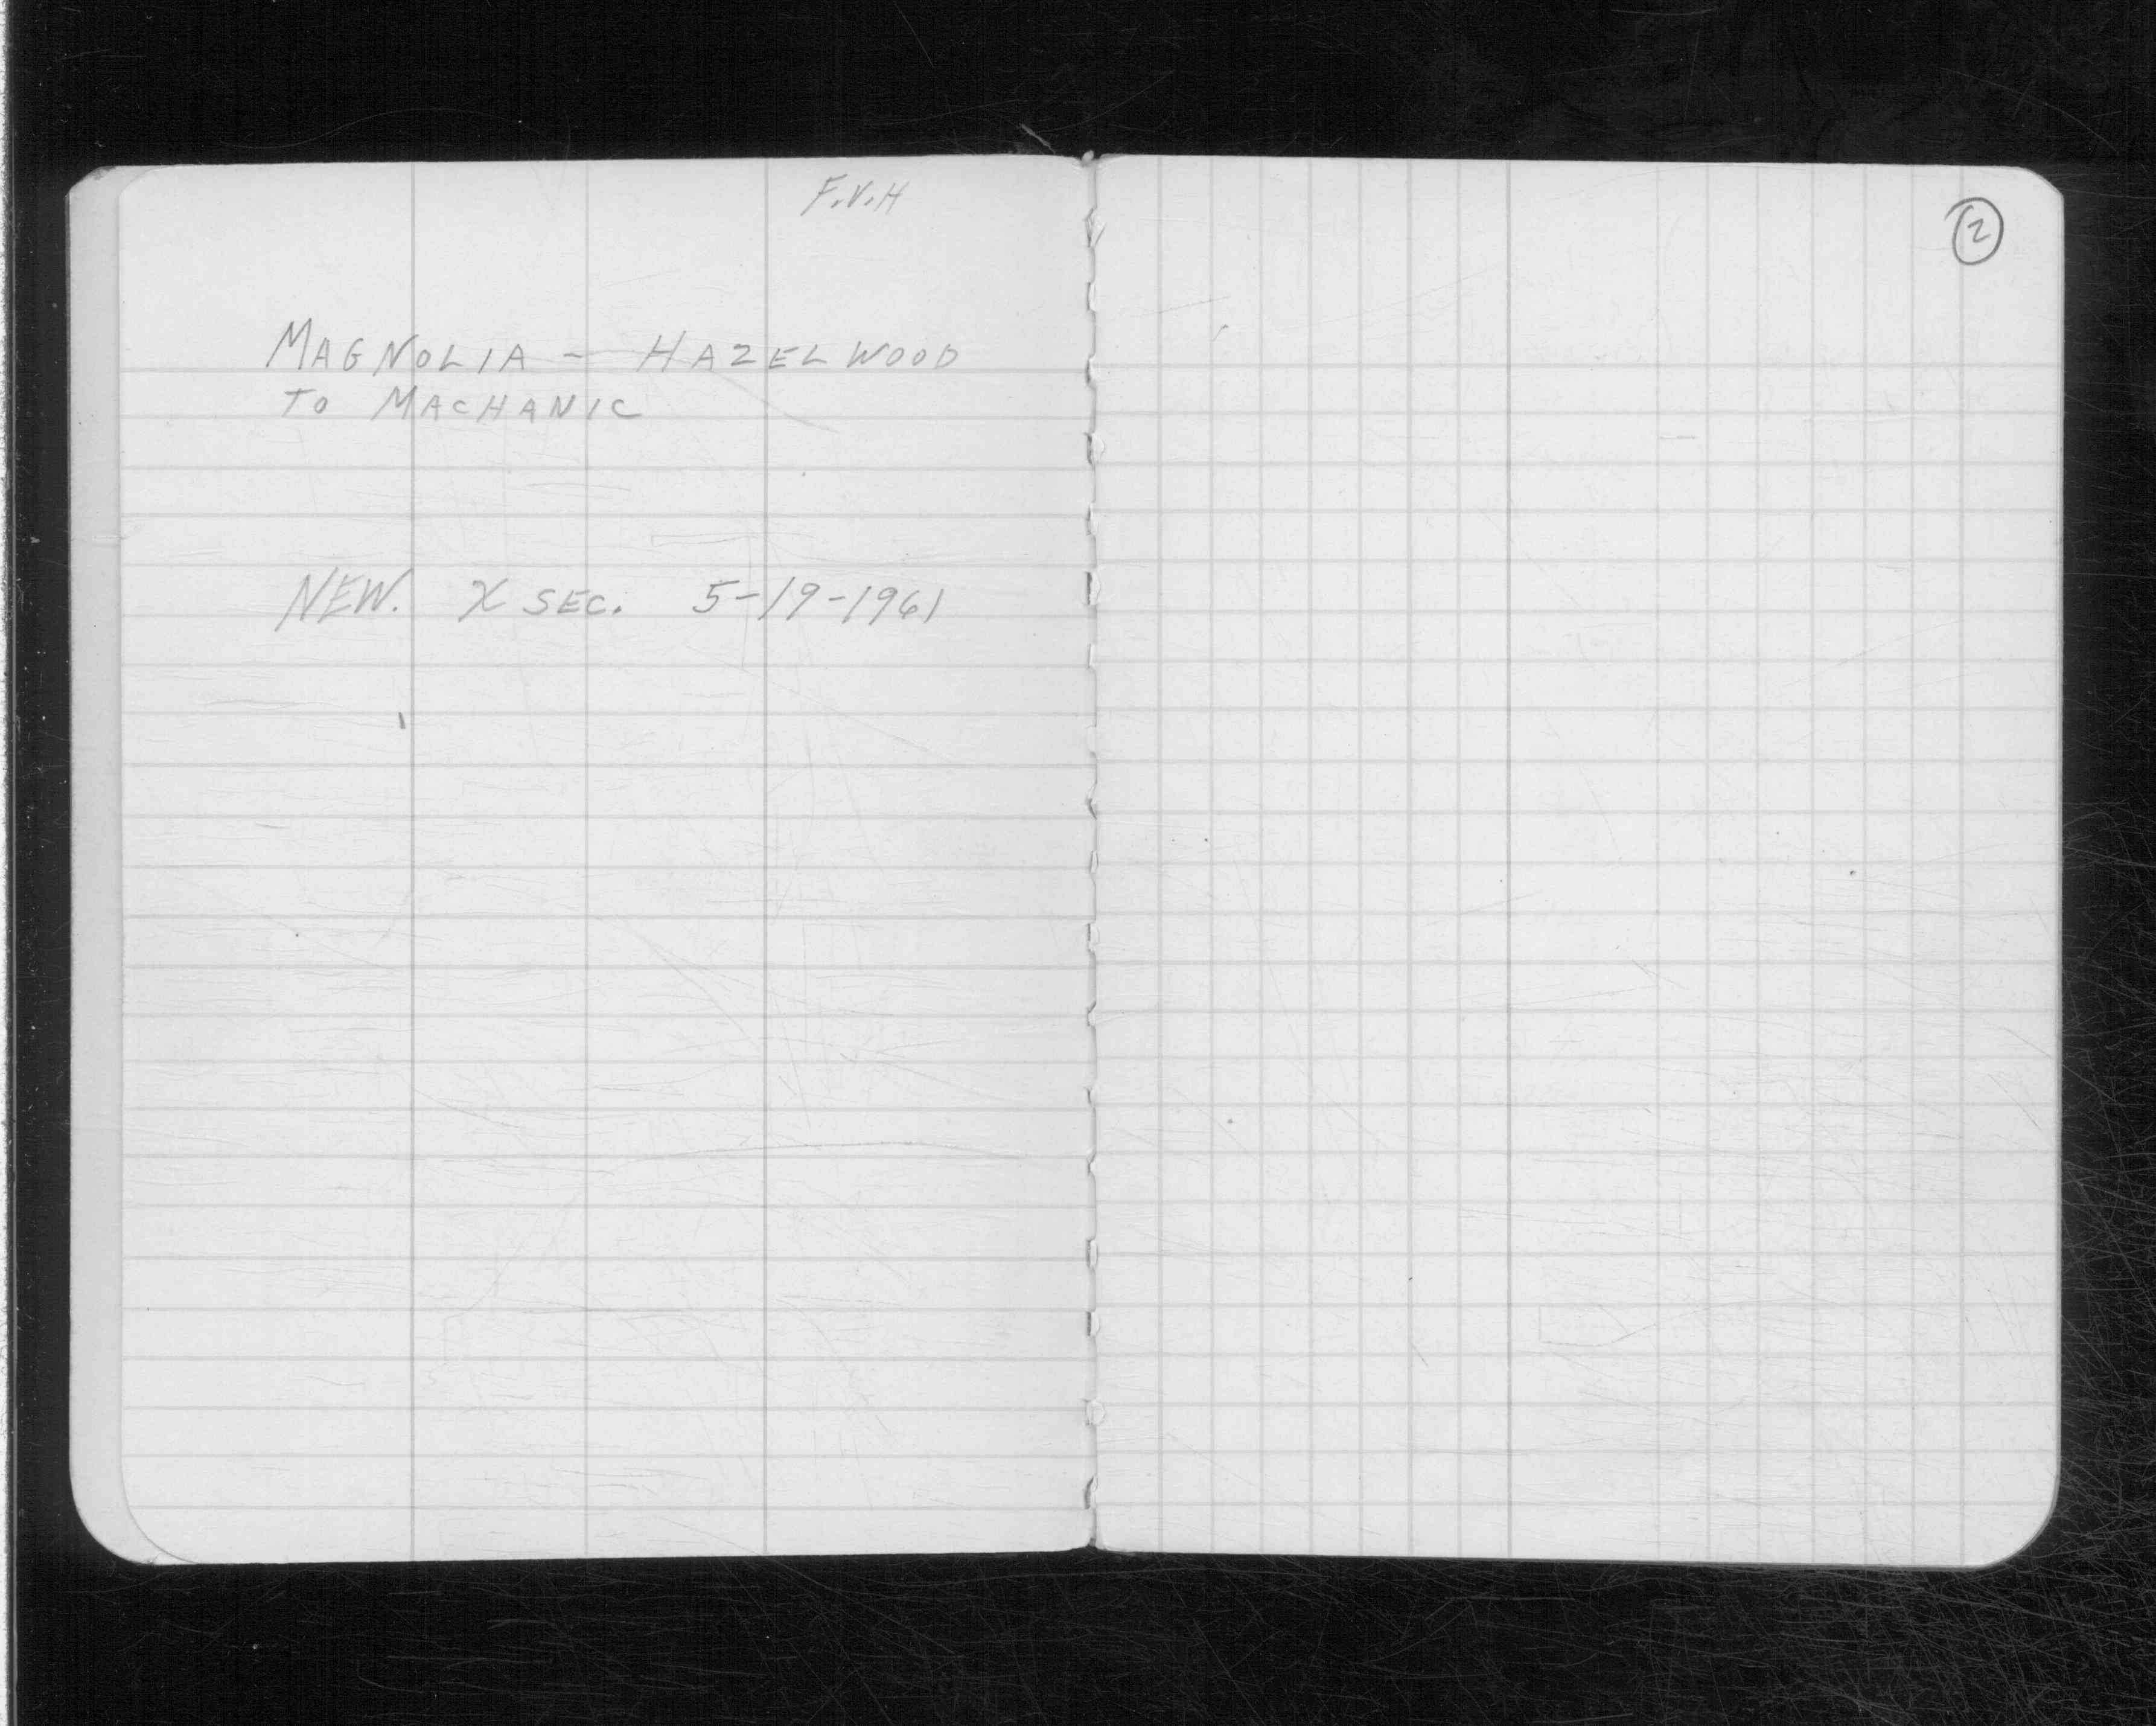 F.V.H
MAGNOLIA - HAZELWOOD
TO MACHANIC
NEW. X SEC. 5-19-1961
2